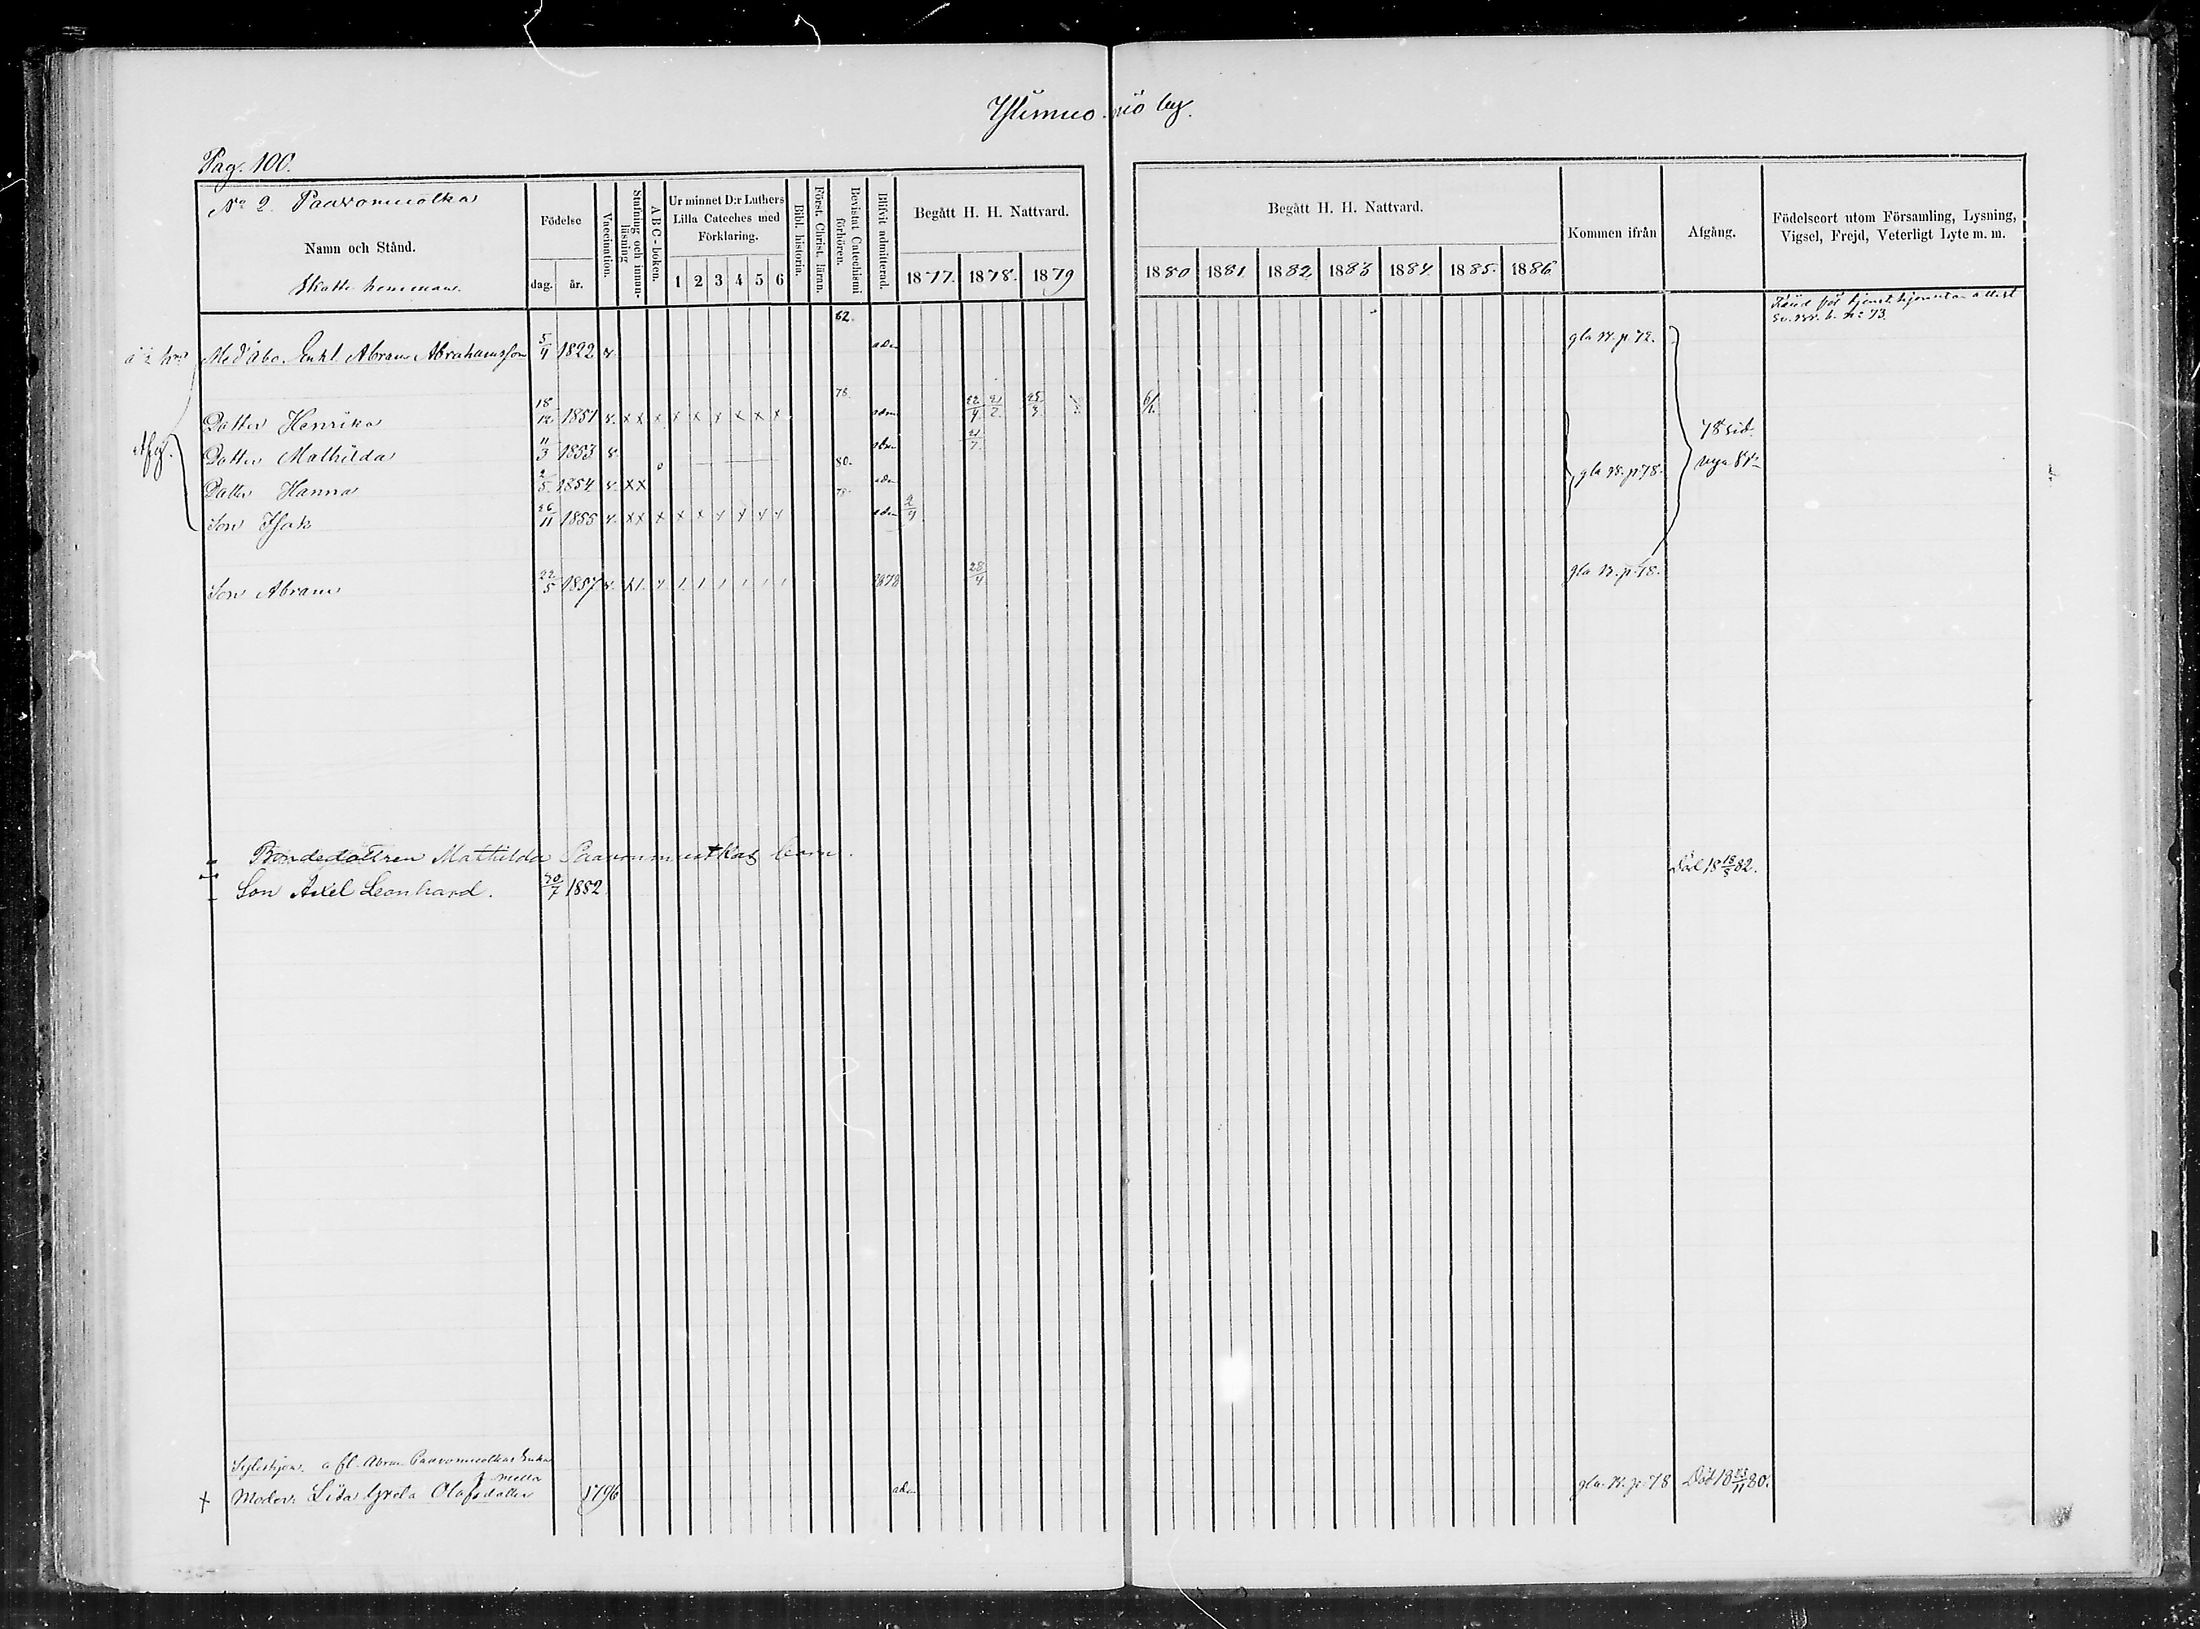 by.
Pag. 100.
No 2. Paavomuotka
Namn och Stånd.
Skatte hemman.
Födelse
dag. år.
Vaccination.
Stafning och innan-läsning
A B C-boken.
Ur minnet D:r Luthers Lilla Cateches med Förklaring.
1 2 3 4 5 6
Bibl. historia.
Först. Christ. läran.
Bevistat Catechismi förhören.
Blifvit admitterad.
Begått H. H. Nattvard.
1877. 1878. 1879
Begått H. H. Nattvard.
1880 1881 1882 1883 1884 1885. 1886
Kommen ifrån
Afgång.
Födelseort utom Församling, Lysning, Vigsel, Frejd, Veterligt Lyte m. m.
62.
Med åbo. Enkl. Abram Abrahamsson 5/4 1822 v. adm gla B. p. 72.
Dotter Henrika 18/12 1851 v. x x x x x x x x x 78. adm 22/4 21/2 25/3 6/1
Afg. Dotter Mathilda 11/3 1853 v. adm 21/7 78 sid.
Dotter Hanna 2/5 1854 v. x x 80. adm gla B. p. 78.
Son Isak 26/11 1855 v. x x x x x x x x x 78. adm
Son Abram 22/5 1857 v. 1878 28/4 gla B. p. 78.
Bondedottren Mathilda Paavomuotkas barn.
Son Axel Leonhard. 30/7 1882 Död 18 18/8 82.
a fl. Abram Paavomuotkas Enka
Moder Lisa Greta Olofsdotter 1796 adm gla. B. p. 78 Död 18 23/11 80.